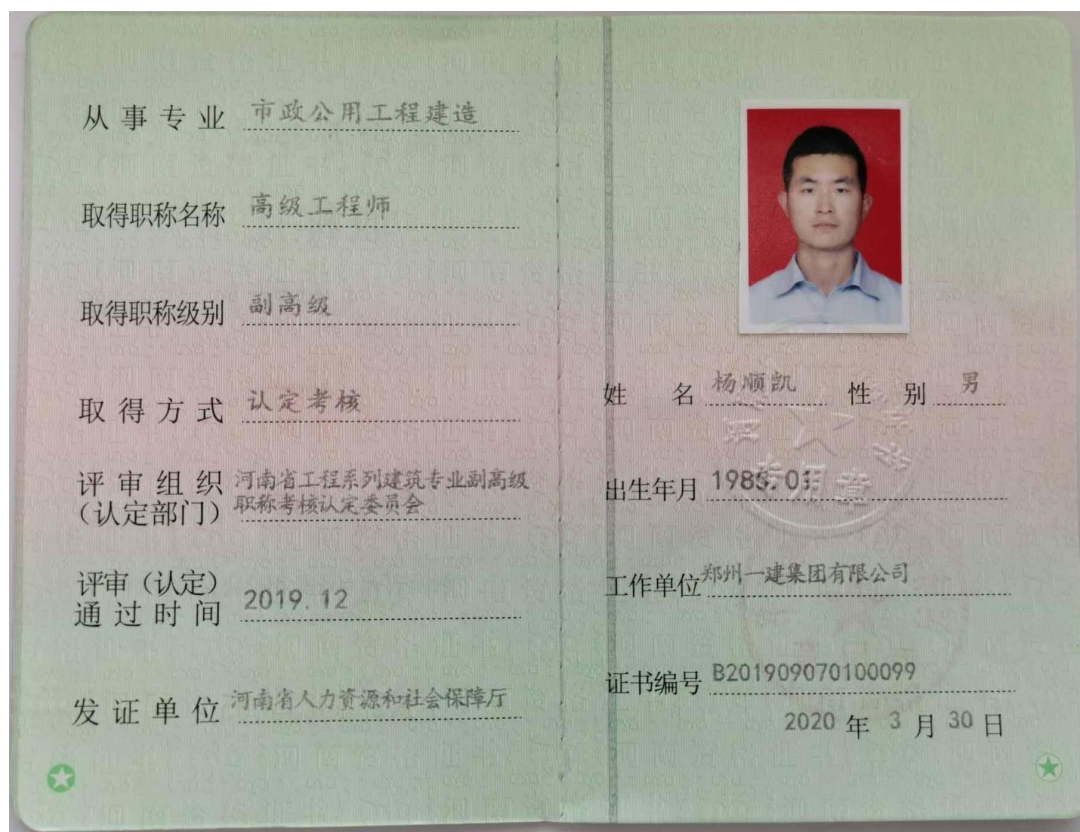 从事专业 市政公用工程建造
取得职称名称 高级工程师
取得职称级别 副高级
取得方式 认定考核
评审组织 河南省工程系列建筑专业副高级
（认定部门） 职称考核认定委员会
评审（认定）
通过时间 2019.12
发证单位 河南省人力资源和社会保障厅
姓名 杨顺凯 性别 男
出生年月 1985.01
工作单位 郑州一建集团有限公司
证书编号 B201909070100099
2020 年 3 月 30 日
专用章